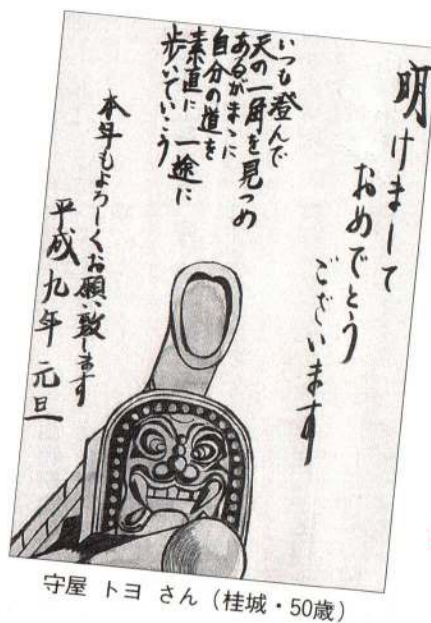 明けまして
おめでとう
ございます
いつも澄んで
天の一角を見つめ
あるがまゝに
自分の道を
素直に一途に
歩いていこう
本年もよろしくお願い致します
平成九年 元旦
守屋 トヨ さん（桂城・50歳）